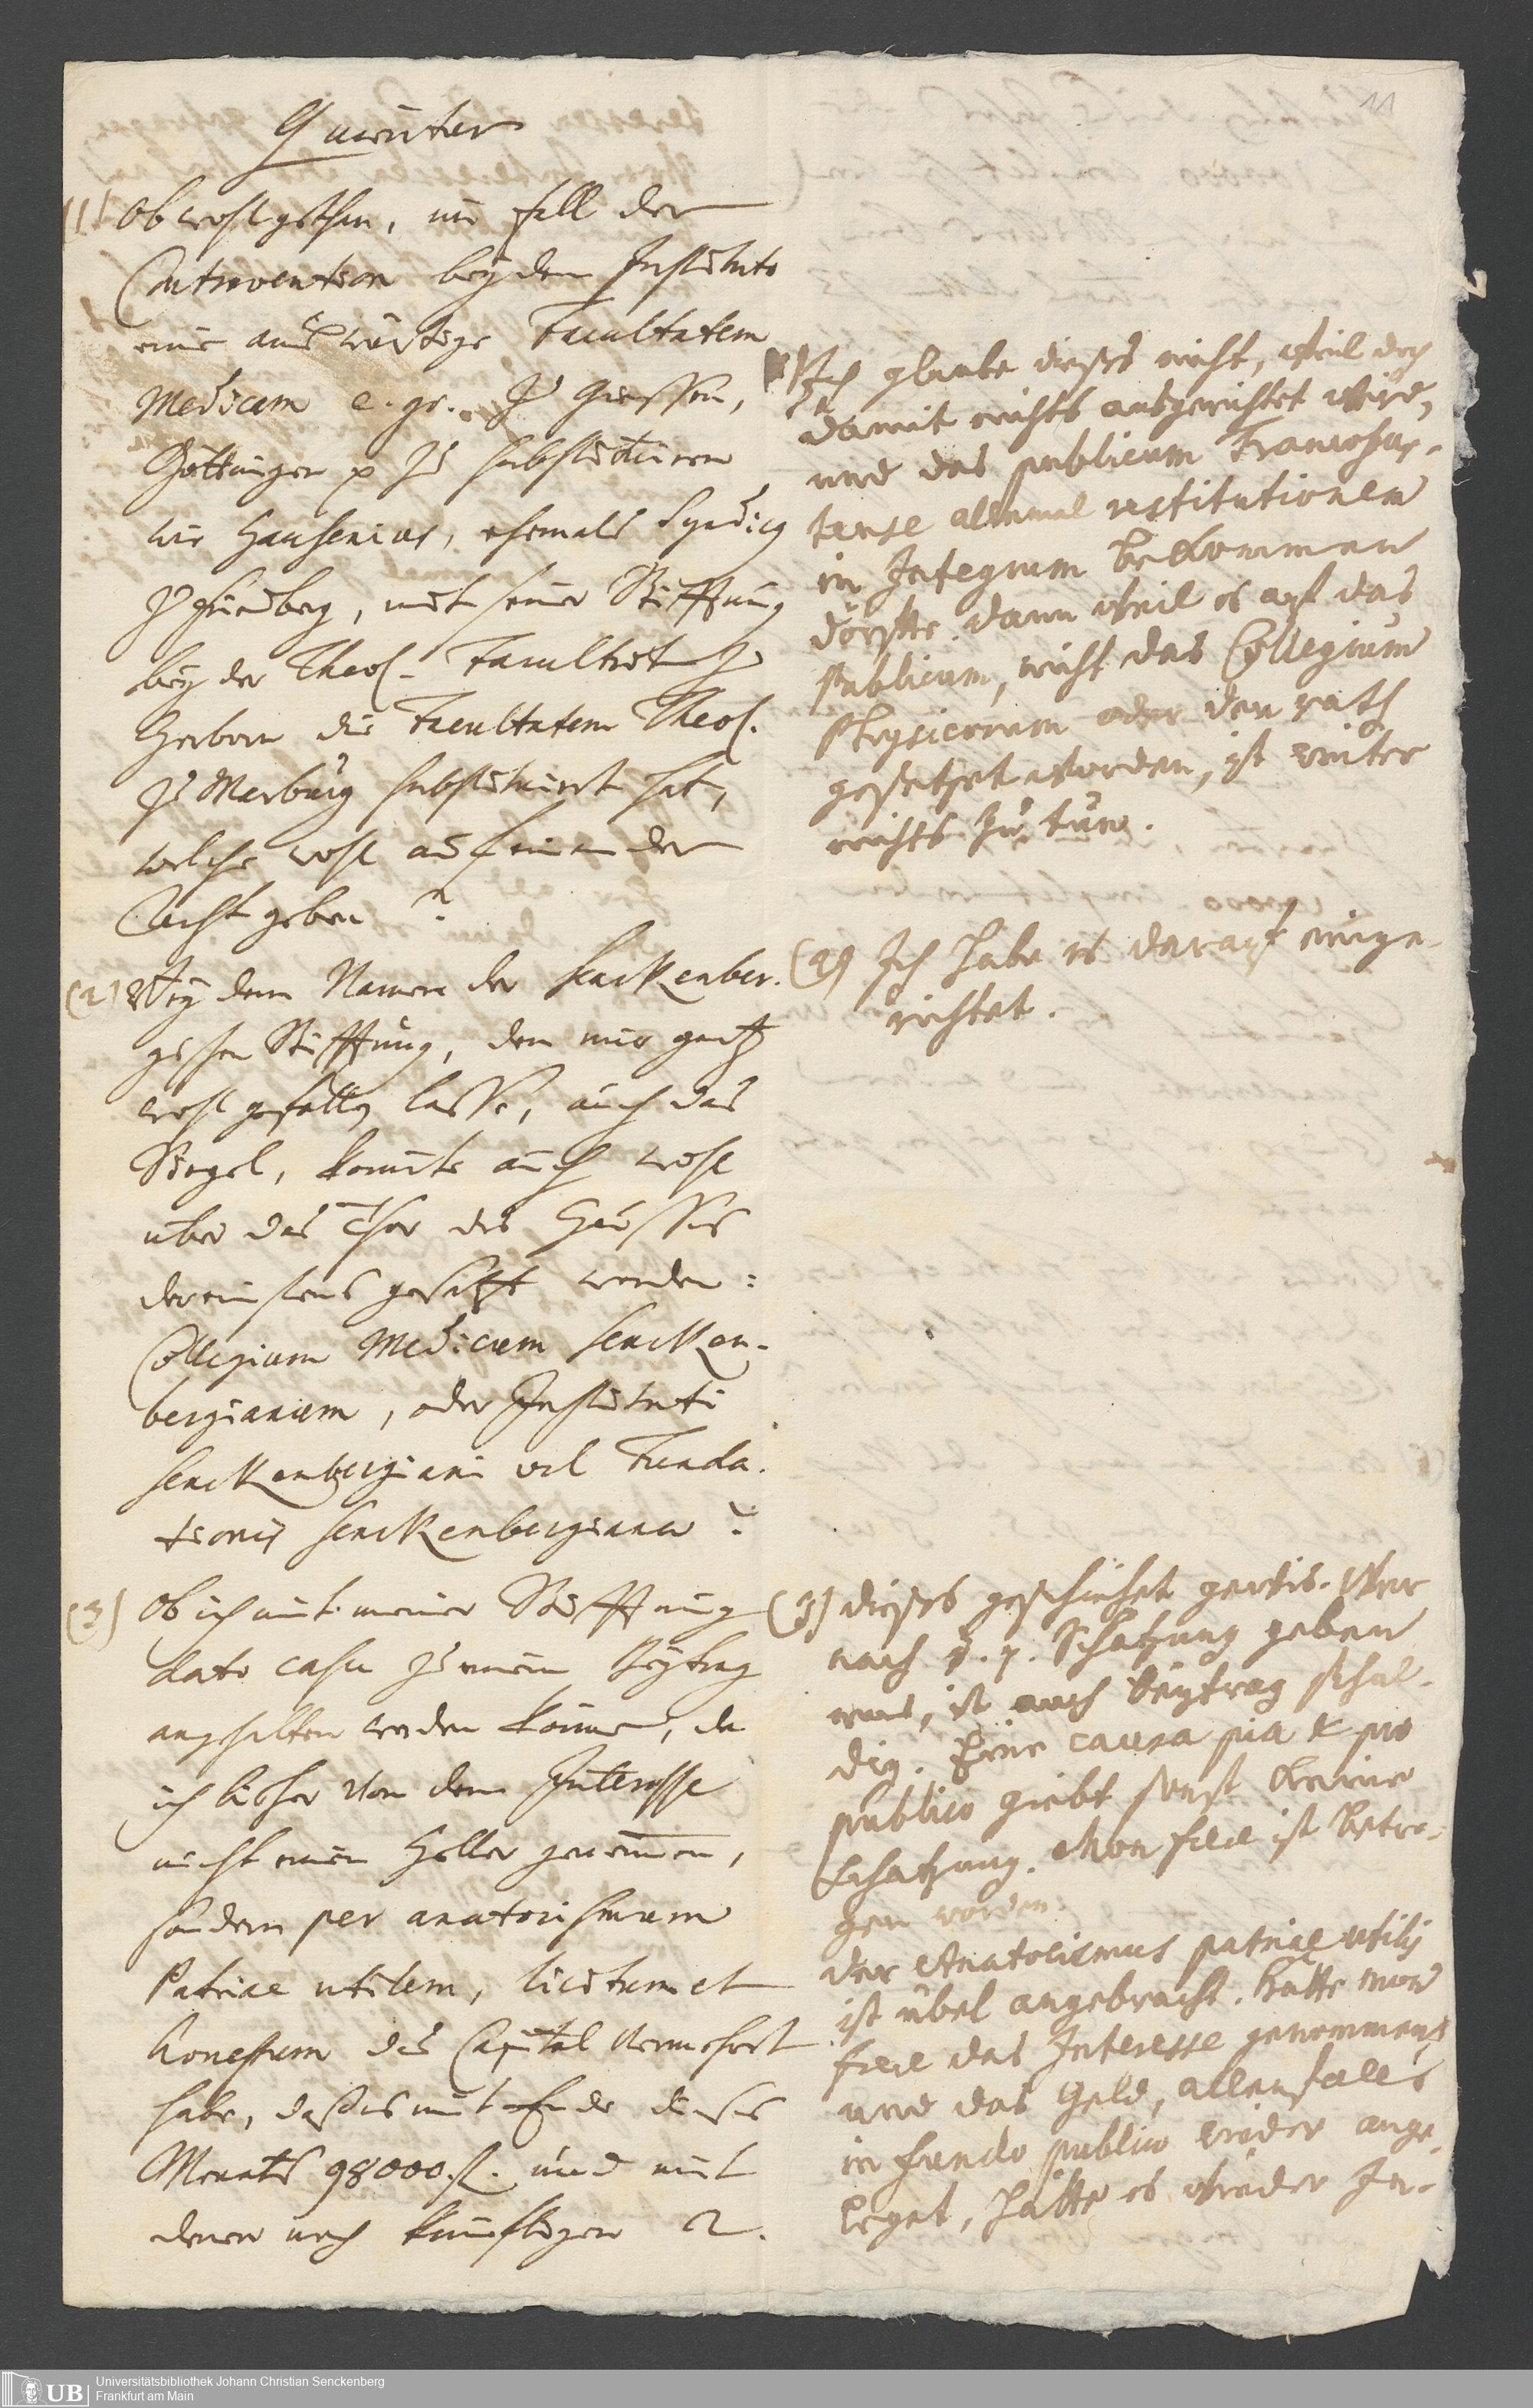 11
Quaeritur
(1) Ob wohl gethan, im fall der
Contravention bey dem Instituto
eine auswärtige Facultatem
Medicam e. gr. zu Giessen,
Göttingen p zu substituiren,
wie Hausenius, ehemals Syndicus
zu Friedberg, mit seiner Stifftung
bey der Theol. Facultät zu
Herborn die Facultatem Theol.
zu Marburg substituirt hat,
welche wohl auf einander
Acht geben?
(2) Bey dem Namen der Senckenber-
gischen Stifftung, den mir gantz
wohl gefallen lasse, auch das
Siegel, könnte auch wohl
über das Thor des Hausses
dereinstens gesetzt werden:
Collegium Medicum Sencken-
bergianum, oder Instituti
Senckenbergiani vel Funda-
tionis Senckenbergianae?
(3) Ob ich mit meiner Stifftung
dato casu zu einem Beytrag
angehalten werden könne, da
ich bisher von dem Interesse
nicht einen Heller genommen,
sondern per anatocismum
Patriae utilem, licitum et
honestum das Capital vermehrt
habe, daß es mit Ende dieses
Monats 98000 fl. und mit
denen noch künfftigen
(1) Ich glaube dießes nicht, weil doch
damit nichts ausgerichtet wird,
und das publicum Francofur-
tense allemal restitutionem
in Integrum bekommen
dörffte. dann weil es auf das
publicum, nicht das Collegium
Physicorum oder den rath
gesetzet worden, ist weiter
nichts zu tun.
(2) Ich habe es darauf einge-
richtet.
(3) dießes geschiehet gewis. Wer
nach d. Schatzung geben
mus, ist auch beytrag schul-
dig. Eine causa pia & pro
publico giebt sonst keine
Schatzung. Mon frere ist betro-
gen worden.
der Anatocismus patriae utilis
ist übel angebracht. hätte mon
frere das Interesse genommen,
und das Geld, allenfalls
in fundo publico wieder ange-
leget, hätte es wieder In-
Universitätsbibliothek Johann Christian Senckenberg
Frankfurt am Main
UB